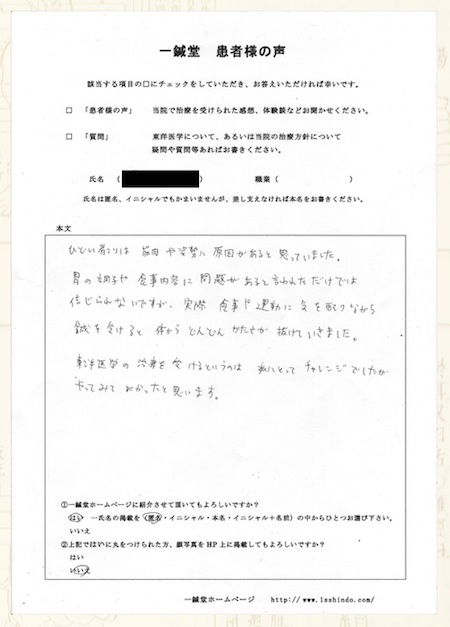 一鍼堂 患者様の声
該当する項目の□にチェックをしていただき、お答えいただければ幸いです。
□ 「患者様の声」 当院で治療を受けられた感想、体験談などお聞かせください。
□ 「質問」 東洋医学について、あるいは当院の治療方針について
疑問や質問等あればお書きください。
氏名 ( ) 職業 ( )
氏名は匿名、イニシャルでもかまいませんが、差し支えなければ本名をお書きください。
本文
ひどい肩こりは 筋肉や姿勢に原因があると思っていました。
胃の調子や食事内容に問題があると言われただけでは
信じられないですが、実際 食事や運動に気を配りながら
鍼を受けると 体から どんどん かたさが 抜けていきました。
東洋医学の治療を受けるというのは 私にとって チャレンジでしたが
やってみて よかったと思います。
①一鍼堂ホームページに紹介させて頂いてもよろしいですか?
はい ―氏名の掲載を(匿名・イニシャル・本名・イニシャル+名前)の中からひとつお選び下さい。
いいえ
②上記ではいに丸をつけられた方、顔写真をHP上に掲載してもよろしいですか?
はい
いいえ
一鍼堂ホームページ http://www.isshindo.com/